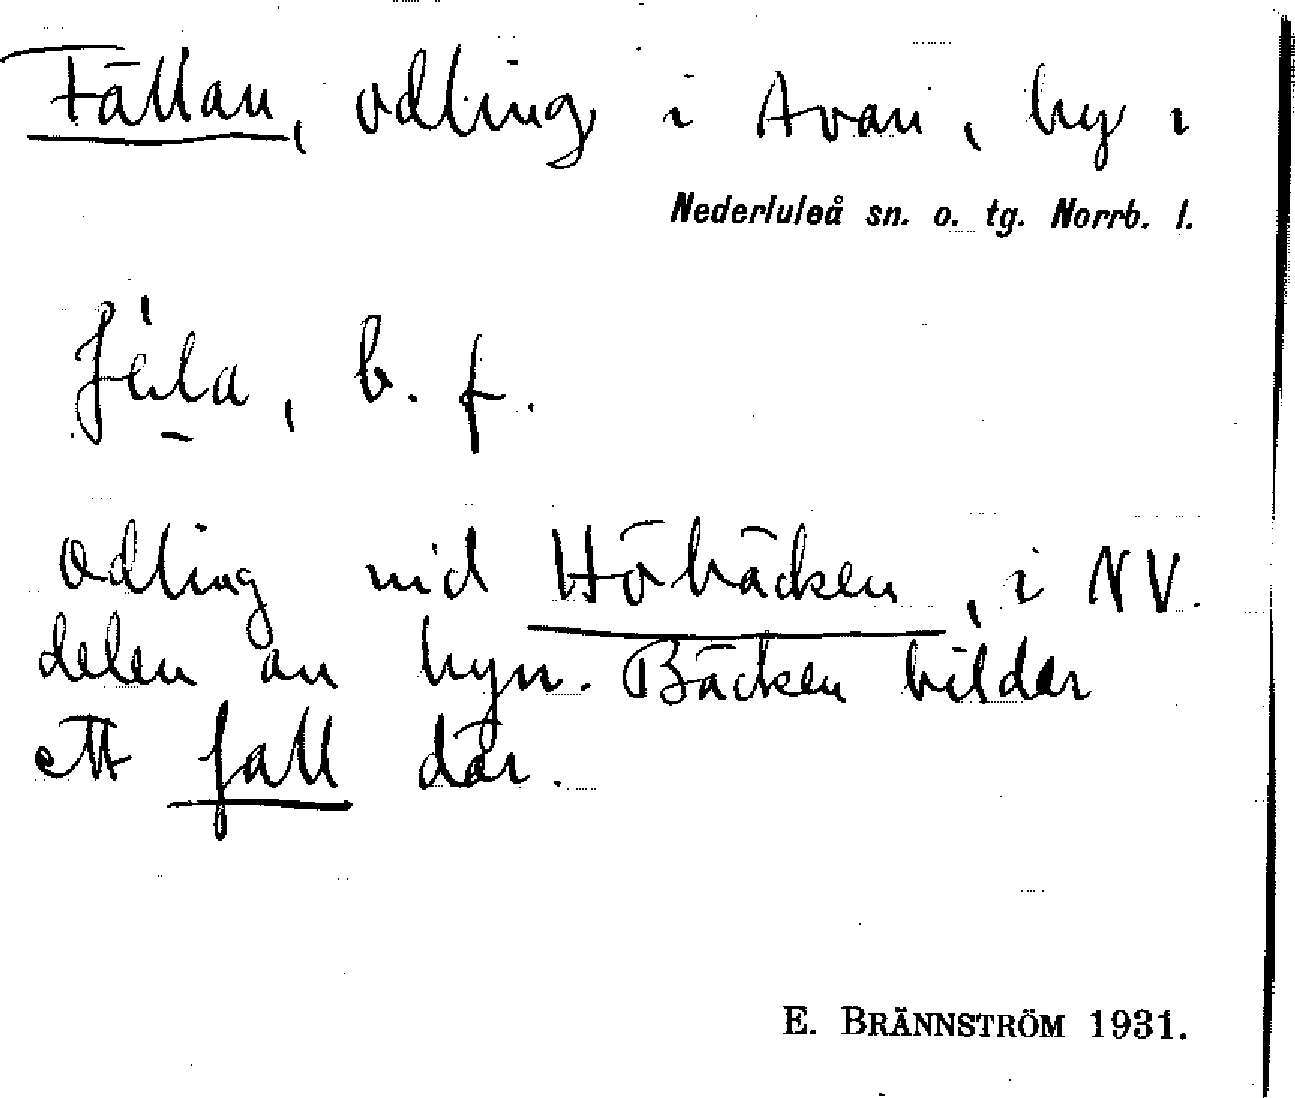 Fällan, odling i Avan, by i
Nederluleå sn. o. tg. Norrb. l.
b. f.
Odling vid Höbäcken, i NV.
delen av byn. Bäcken bildar
ett fall där.
E. BRÄNNSTRÖM 1931.